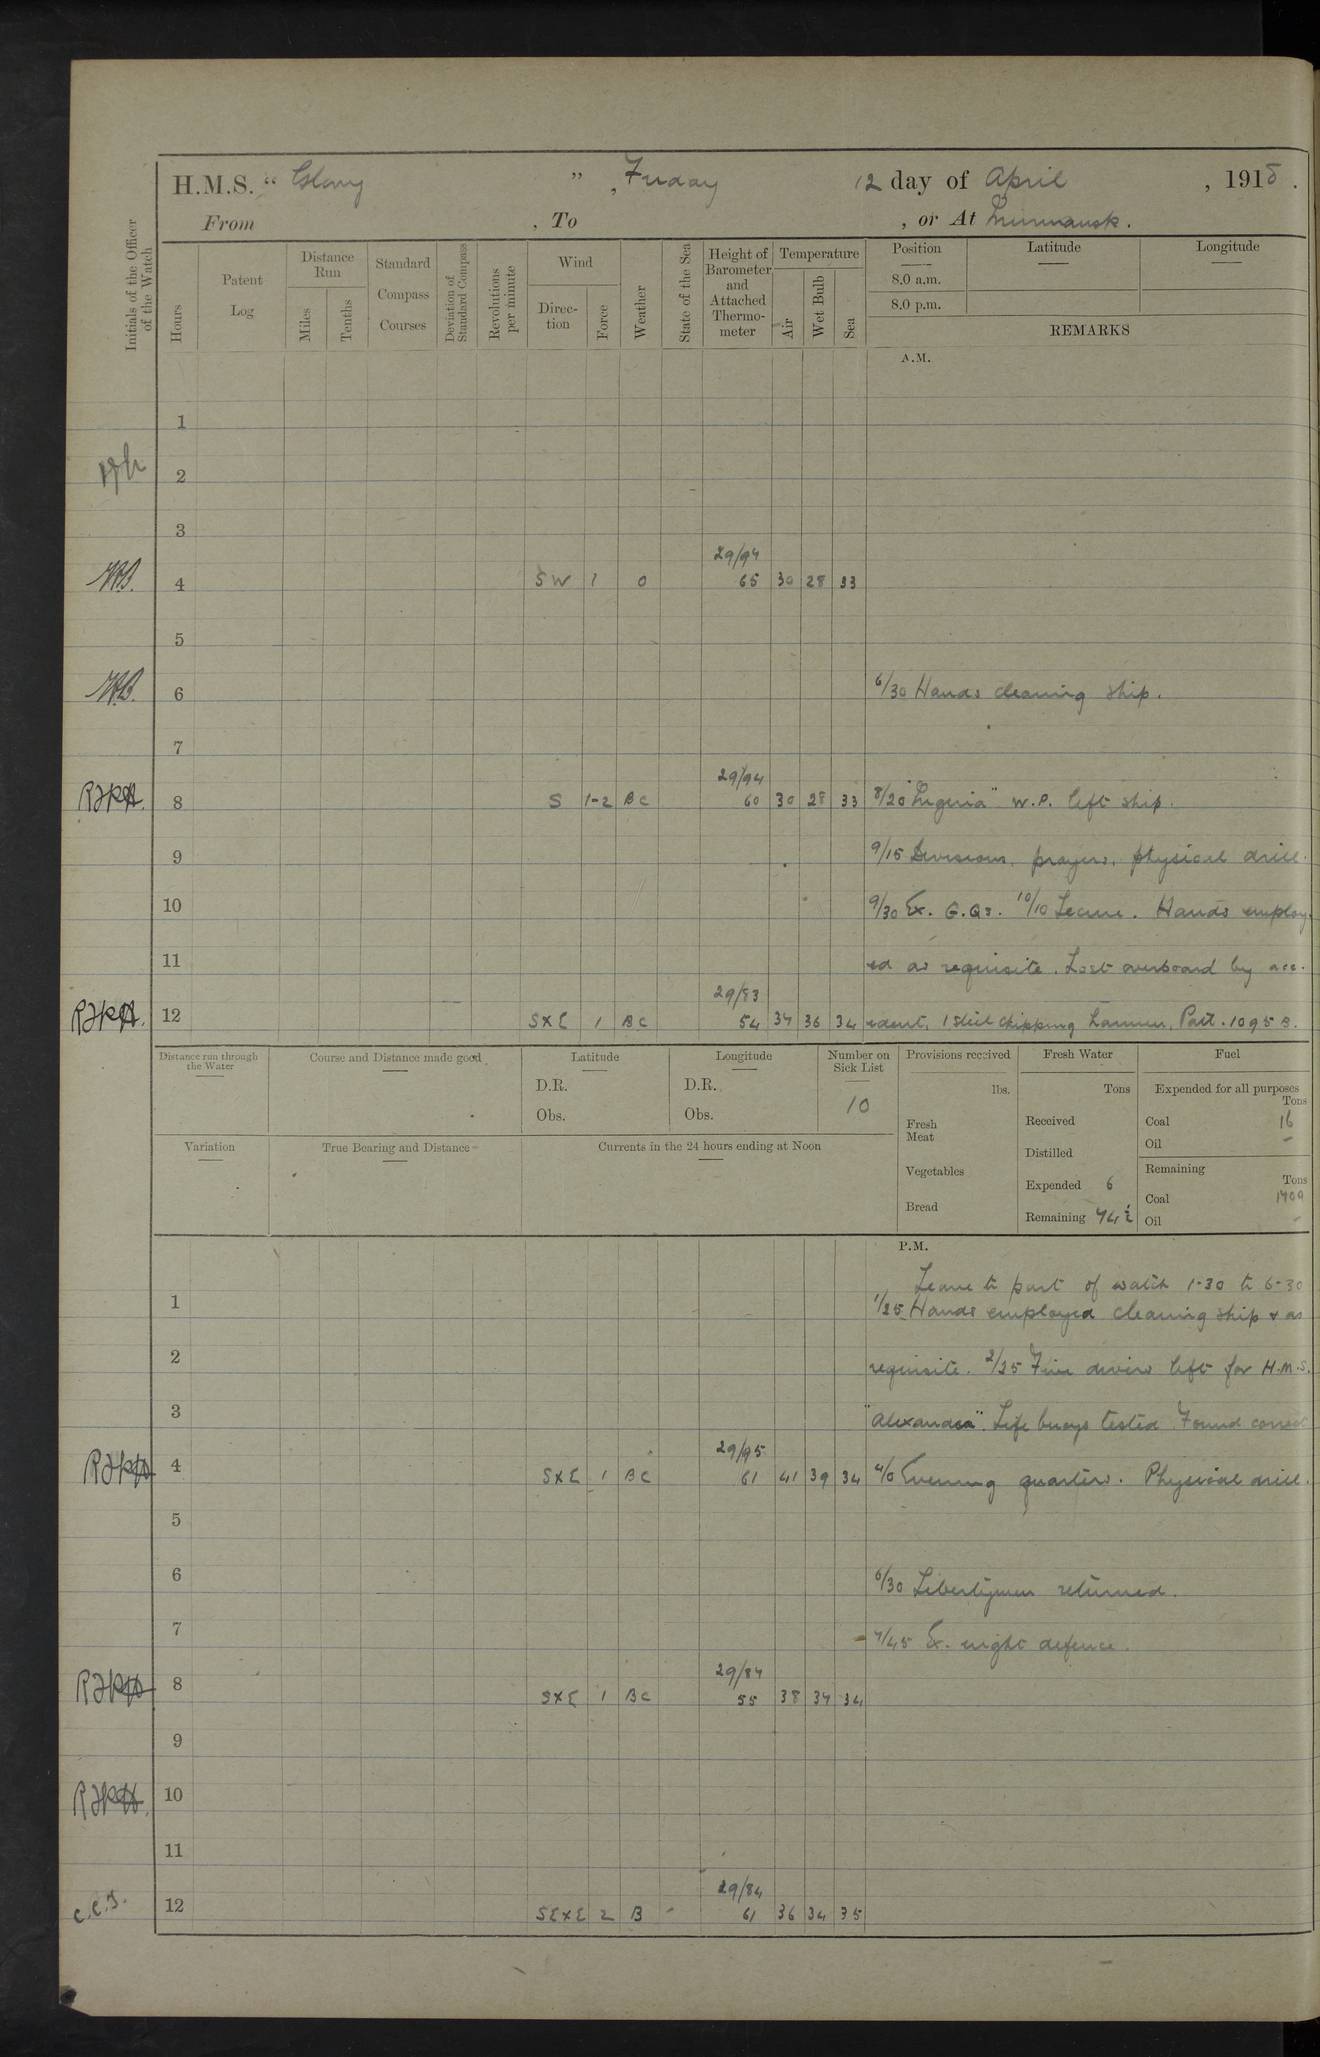 H.M.S. " Glory " , Friday 12 day of April , 1918 .
From , To , or At Murmansk.
Initials of the Officer of the Watch
Hours
Patent Log
Distance Run
Miles
Tenths
Standard Compass Courses
Deviation of Standard Compass
Revolutions per minute
Wind
Direction
Force
Weather
State of the Sea
Height of Barometer and Attached Thermometer
Temperature
Air
Wet Bulb
Sea
Position
8.0 a.m.
8.0 p.m.
Latitude
Longitude
REMARKS
A.M.
1
2
3
29/94
4 SW 1 O 65 30 28 33
5
6 6/30 Hands cleaning ship.
7
29/94
8 S 1-2 BC 60 30 28 33 8/20 W.P. left ship.
9 9/15 Divisions, prayers, physical drill.
10 9/30 Ex. G.Qs. 10/10 Hands employ-
11 ed as requisite. Lost overboard by acc-
29/83
12 SXE 1 BC 54 34 36 34 ident, 1 steel chipping hammer, Patt. 1095 B.
Distance run through the Water
Course and Distance made good
Latitude
D.R.
Obs.
Longitude
D.R.
Obs.
Number on Sick List
10
Variation
True Bearing and Distance
Currents in the 24 hours ending at Noon
Provisions received
lbs.
Fresh Meat
Vegetables
Bread
Fresh Water
Tons
Received
Distilled
Expended 6
Remaining 74½
Fuel
Expended for all purposes
Tons
Coal 16
Oil -
Remaining
Tons
Coal 1409
Oil -
P.M.
Leave to part of watch 1-30 to 6-30
1 1/25 Hands employed cleaning ship & as
2 requisite. 2/25 divers left for H.M.S.
3 "Alexander". Life buoys tested. Found correct
29/95
4 SXE 1 BC 61 41 39 34 4/0 Evening quarters. Physical drill.
5
6 6/30 Libertymen returned.
7 7/45 Ex. night defence.
29/84
8 SXE 1 BC 55 38 34 34
9
10
11
29/84
C.C.S. 12 SEXE 2 B - 61 36 34 35